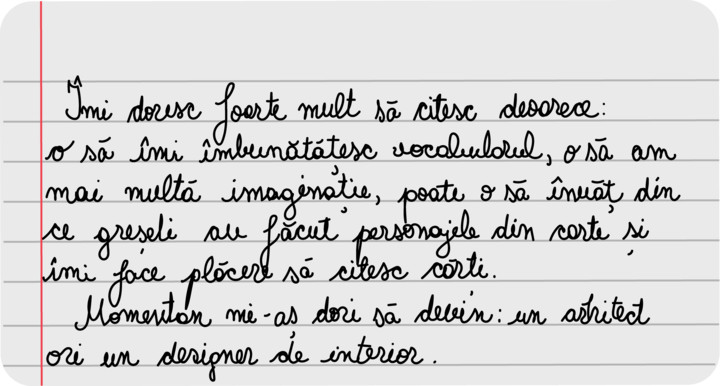 Îmi doresc foarte mult să citesc deoarece:
o să îmi îmbunătățesc vocabularul, o să am
mai multă imaginație, poate o să învăț din
ce greșeli au făcut personajele din carte și
îmi face plăcere să citesc cărți.
Momentan mi-aș dori să devin: un arhitect
ori un designer de interior.